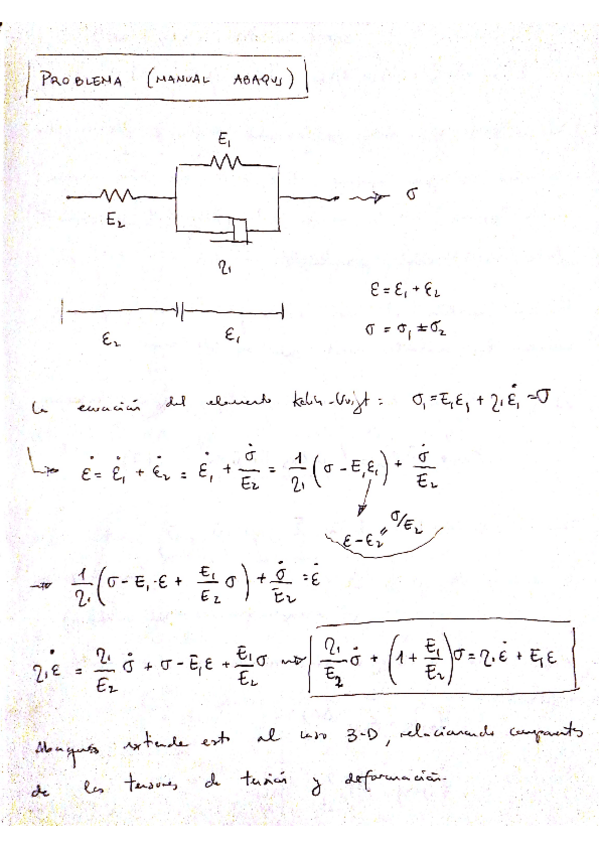 PROBLEMA (MANUAL ABAQUS)
E₁
E₂
σ
η₁
ε = ε₁ + ε₂
ε₂ ε₁
σ = σ₁ = σ₂
La ecuación del elemento Kelvin-Voigt: σ₁ = E₁ε₁ + η₁ε̇₁ = σ
ε̇ = ε̇₁ + ε̇₂ = ε̇₁ + σ̇/E₂ = 1/η₁ (σ - E₁ε₁) + σ̇/E₂
ε - ε₂ = σ/E₂
→ 1/η₁ (σ - E₁·ε + E₁/E₂ σ) + σ̇/E₂ = ε̇
η₁ε̇ = η₁/E₂ σ̇ + σ - E₁ε + E₁/E₂ σ → η₁/E₂ σ̇ + (1 + E₁/E₂)σ = η₁ε̇ + E₁ε
Abaqus extiende esto al caso 3-D, relacionando componentes
de los tensores de tensión y deformación.